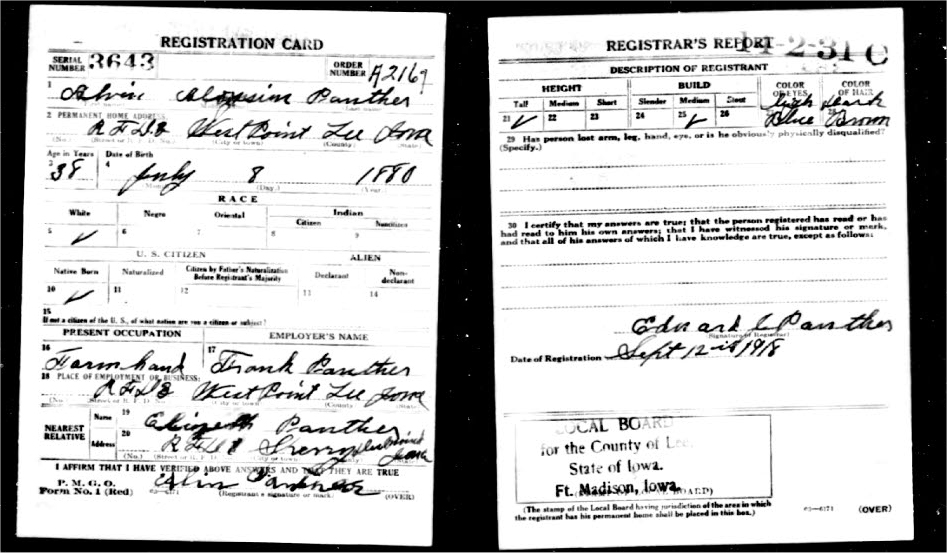 REGISTRATION CARD
SERIAL NUMBER 3643
ORDER NUMBER A2167
1 Alvin Aloysius Panther
2 PERMANENT HOME ADDRESS:
R F D 2 West Point Lee Iowa
(No.) (Street or R. F. D. No.) (City or town) (County) (State)
Age in Years Date of Birth
3 38 4 July 8 1880
(Month.) (Day.) (Year.)
RACE
White Negro Oriental Indian
Citizen Noncitizen
5 ✓ 6 7 8 9
U. S. CITIZEN ALIEN
Native Born Naturalized Citizen by Father's Naturalization Before Registrant's Majority Declarant Non-declarant
10 ✓ 11 12 13 14
15
If not a citizen of the U. S., of what nation are you a citizen or subject?
PRESENT OCCUPATION EMPLOYER'S NAME
16 Farm hand 17 Frank Panther
18 PLACE OF EMPLOYMENT OR BUSINESS:
R F D 2 West Point Lee Iowa
(No.) (Street or R. F. D. No.) (City or town) (County) (State)
NEAREST RELATIVE
Name 19 Elizabeth Panther
Address 20 R F D Iowa
(No.) (Street or R. F. D. No.) (City or town)
I AFFIRM THAT I HAVE VERIFIED ABOVE ANSWERS AND THAT THEY ARE TRUE
P. M. G. O.
Form No. 1 (Red) 03—6171 Alvin Panther
(Registrant's signature or mark) (OVER)
REGISTRAR'S REPORT
14-2-31 C
DESCRIPTION OF REGISTRANT
HEIGHT BUILD COLOR OF EYES COLOR OF HAIR
Tall Medium Short Slender Medium Stout
21 ✓ 22 23 24 25 ✓ 26 27 Light Blue 28 Dark Brown
29 Has person lost arm, leg, hand, eye, or is he obviously physically disqualified?
(Specify.)
30 I certify that my answers are true; that the person registered has read or has
had read to him his own answers; that I have witnessed his signature or mark,
and that all of his answers of which I have knowledge are true, except as follows:
Edward C Panther
(Signature of Registrar)
Date of Registration Sept 12-1918
LOCAL BOARD
for the County of Lee,
State of Iowa.
Ft. Madison, Iowa.
(The stamp of the Local Board having jurisdiction of the area in which
the registrant has his permanent home shall be placed in this box.)
03—6171 (OVER)